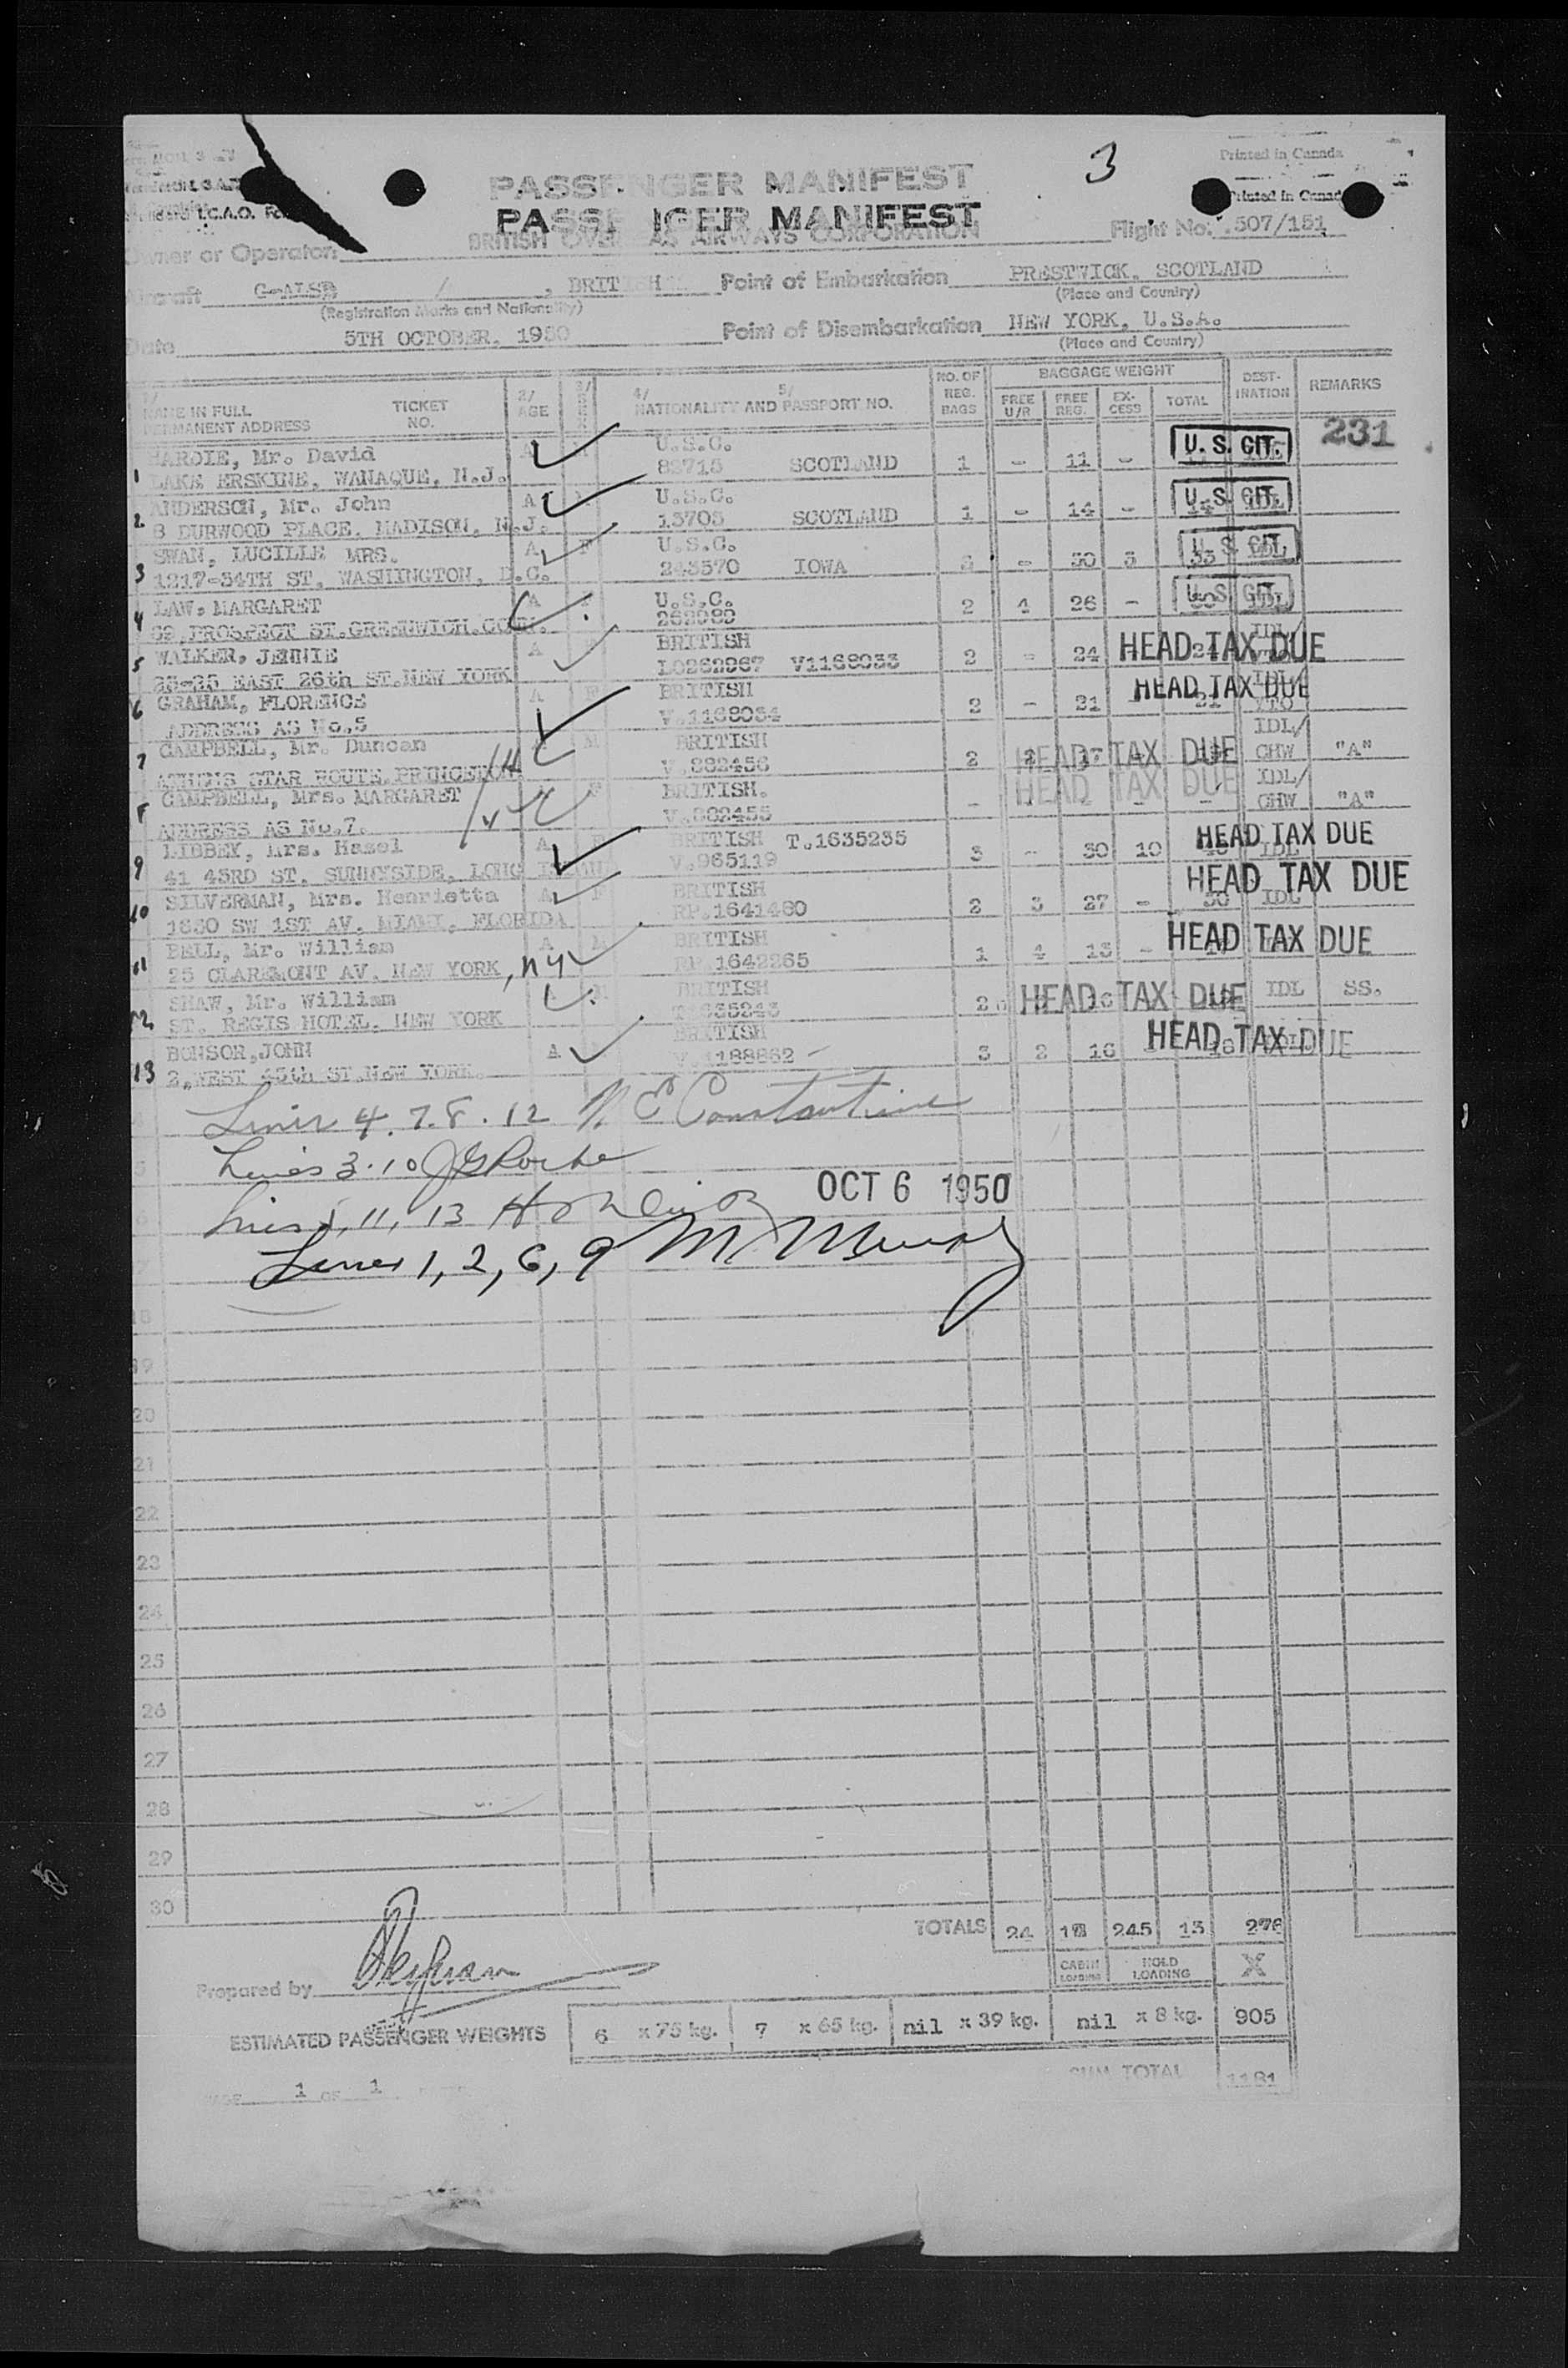 3
Printed in Canada
PASSENGER MANIFEST
PASSENGER MANIFEST
Printed in Canada
I.C.A.O.
Owner or Operator BRITISH OVERSEAS AIRWAYS CORPORATION Flight No. 507/151
Aircraft , BRITISH Point of Embarkation PRESTWICK, SCOTLAND
(Registration Marks and Nationality) (Place and Country)
Date 5TH OCTOBER. 1950 Point of Disembarkation NEW YORK, U.S.A.
(Place and Country)
1/ NAME IN FULL PERMANENT ADDRESS TICKET NO. 2/ AGE 3/ SEX 4/ 5/ NATIONALITY AND PASSPORT NO. NO. OF REG. BAGS BAGGAGE WEIGHT FREE U/R FREE REG. EX-CESS TOTAL DEST-INATION REMARKS
231
HARDIE, Mr. David A U.S.C. U.S. CIT.
1 LAKE ERSKINE, WANAQUE, N.J. 82715 SCOTLAND 1 - 11 -
ANDERSON, Mr. John A U.S.C. U.S. CIT.
2 8 DURWOOD PLACE, MADISON, N.J. 13703 SCOTLAND 1 - 14 -
SWAN, LUCILLE MRS. A F U.S.C. U.S. CIT.
3 1217-34TH ST, WASHINGTON, D.C. 243570 IOWA - 30 3 33
LAW, MARGARET A U.S.C. U.S. CIT.
4 PROSPECT ST. GREENWICH. CONN. 2 4 26 - IDL
WALKER, JENNIE A BRITISH IDL/
5 25-35 EAST 26th ST. NEW YORK LO262967 V1168033 2 - 24 HEAD TAX DUE
6 GRAHAM, FLORENCE A F BRITISH HEAD TAX DUE IDL/
ADDRESS AS No.5 V.1168034 2 - 21 21 YTO
7 CAMPBELL, Mr. Duncan M BRITISH IDL/
ATHENS STAR ROUTE, PRINCETON V.882456 2 HEAD TAX DUE GHW "A"
8 CAMPBELL, Mrs. MARGARET F BRITISH. IDL/
ADDRESS AS No.7. V.882455 - HEAD TAX DUE GHW "A"
LIBBEY, Mrs. Hazel A F BRITISH T.1635235 HEAD TAX DUE
9 41 43RD ST. SUNNYSIDE, LONG ISLAND V.965119 3 - 30 10 IDL
SILVERMAN, Mrs. Henrietta A F BRITISH HEAD TAX DUE
10 1830 SW 1ST AV. MIAMI, FLORIDA RP.1641480 2 3 27 - 30 IDL
BELL, Mr. William A M BRITISH
11 25 CLAREMONT AV. NEW YORK, ny RP.1642265 1 4 13 - HEAD TAX DUE
SHAW, Mr. William BRITISH
12 ST. REGIS HOTEL. NEW YORK 2 HEAD TAX DUE IDL SS.
BONSOR, JOHN A BRITISH
13 2, WEST 45th ST. NEW YORK. V.1188862 3 2 16 HEAD TAX DUE
Lines 4. 7. 8. 12 N E Constantine
Lines 3. 10 J G Roche
Lines 5, 11, 13
OCT 6 1950
Lines 1, 2, 6, 9
18
19
20
21
22
23
24
25
26
27
28
29
30
TOTALS 24 245 13 276
CABIN LOADING HOLD LOADING X
Prepared by
ESTIMATED PASSENGER WEIGHTS 6 x 75 kg. 7 x 65 kg. nil x 39 kg. nil x 8 kg. 905
SUM TOTAL 1181
PAGE 1 OF 1